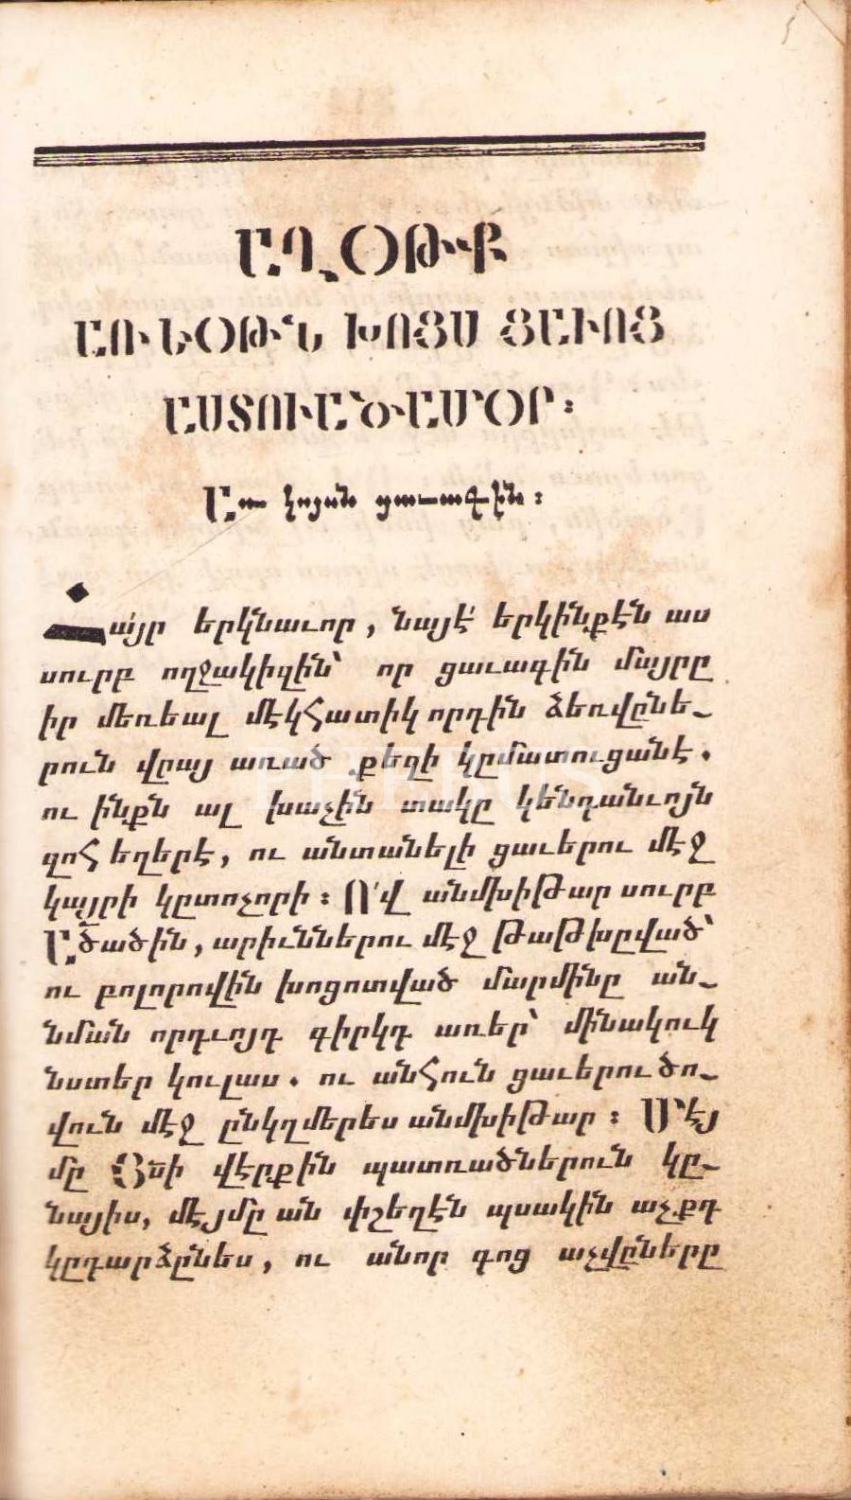 ԱՂՕԹՔ
ԱՌ ԵՕԹՆ ԽՈՑՍ ՑԱՒՈՑ
ԱՍՏՈՒԱԾԱՄՕՐ։
Առ կոյսն ցաւագին։
Հա՛յր երկնաւոր, նայէ՛ երկինքէն աս
սուրբ ողջակիզին՝ որ ցաւագին մայրը
իր մեռեալ մէկհատիկ որդին ձեռվընե-
րուն վրայ առած քեզի կըմատուցանէ.
ու ինքն ալ խաչին տակը կենդանւոյն
զոհ եղերէ, ու անտանելի ցաւերու մէջ
կայրի կըտոչորի։ Ո՛վ անմխիթար սուրբ
Ածածին, արիւններու մէջ թաթխըված՝
ու բոլորովին խոցոտված մարմինը ան-
նման որդւոյդ գիրկդ առեր՝ մինակուկ
նստեր կուլաս. ու անհուն ցաւերու ծո-
վուն մէջ ընկղմերես անմխիթար։ Մէյ
մը Յնի վէրքին պատռածներուն կը-
նայիս, մէյմը ան փշեղէն պսակին աչքդ
կըդարձընես, ու անոր գոց աչվըները